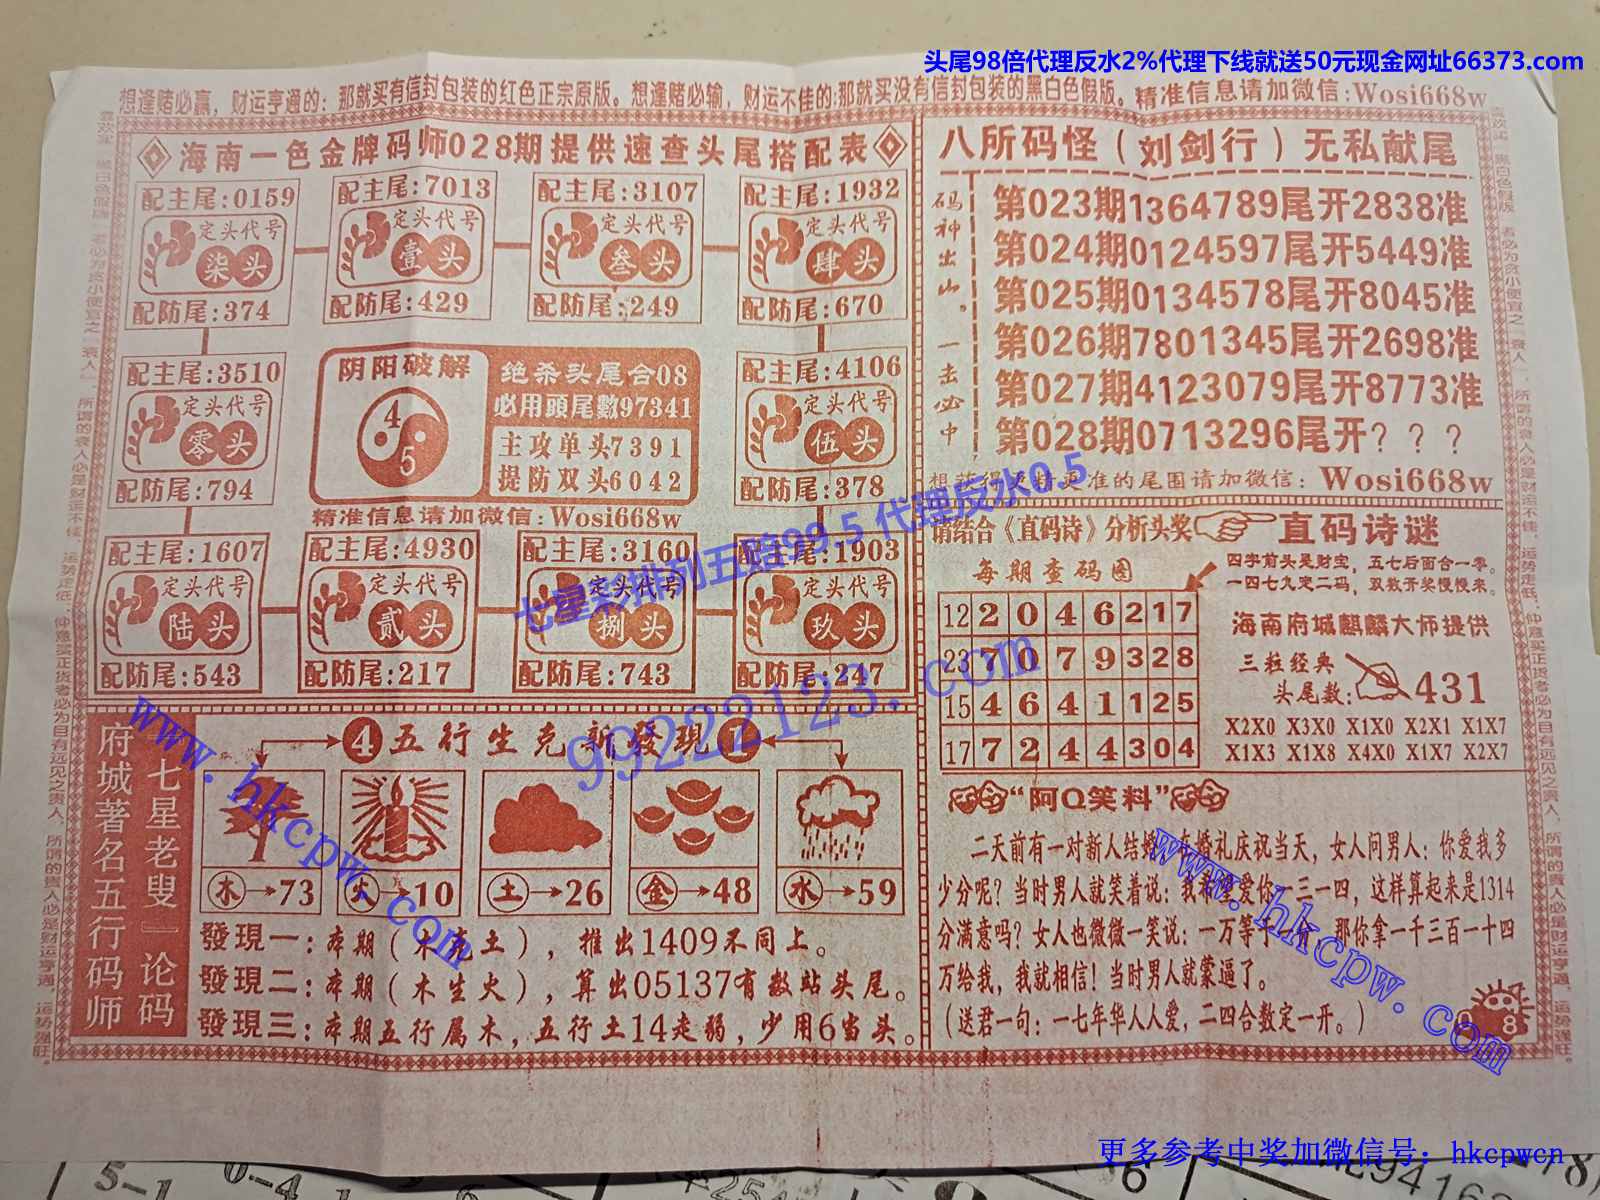 头尾98倍代理反水2%代理下线就送50元现金网址66373.com
想逢赌必赢，财运亨通的：那就买有信封包装的红色正宗原版。想逢赌必输，财运不佳的:那就买没有信封包装的黑白色假版。精准信息请加微信:Wosi668w
海南一色金牌码师028期提供速查头尾搭配表
配主尾:0159
定头代号
柒头
配防尾:374
配主尾:7013
定头代号
壹头
配防尾:429
配主尾:3107
定头代号
叁头
配防尾:249
配主尾:1932
定头代号
肆头
配防尾:670
配主尾:3510
定头代号
零头
配防尾:794
阴阳破解
4
5
绝杀头尾合08
必用頭尾數97341
主攻单头7391
提防双头6042
精准信息请加微信:Wosi668w
配主尾:4106
定头代号
伍头
配防尾:378
配主尾:1607
定头代号
陆头
配防尾:543
配主尾:4930
定头代号
贰头
配防尾:217
配主尾:3160
定头代号
捌头
配防尾:743
配主尾:1903
定头代号
玖头
配防尾:247
八所码怪（刘剑行）无私献尾
码神出山。一击必中
第023期1364789尾开2838准
第024期0124597尾开5449准
第025期0134578尾开8045准
第026期7801345尾开2698准
第027期4123079尾开8773准
第028期0713296尾开？？？
想获得更精更准的尾围请加微信：Wosi668w
七星彩排列五赔99.5 代理反水0.5
99222123.com
请结合《直码诗》分析头奖
直码诗谜
每期查码图
四字前头是财宝，五七后面合一零。
一四七九定二码，双数开奖慢慢来。
12 2 0 4 6 2 1 7
23 7 0 7 9 3 2 8
15 4 6 4 1 1 2 5
17 7 2 4 4 3 0 4
海南府城麒麟大师提供
三粒经典
头尾数:
431
X2X0 X3X0 X1X0 X2X1 X1X7
X1X3 X1X8 X4X0 X1X7 X2X7
『七星老叟』论码
府城著名五行码师
4 五行生克新發現 1
木→73
火→10
土→26
金→48
水→59
發現一：本期（木克土），推出1409不同上。
發現二：本期（木生火），算出05137有数站头尾。
發現三：本期五行属木，五行土14走弱，少用6当头。
“阿Q笑料”
二天前有一对新人结婚，在婚礼庆祝当天，女人问男人：你爱我多
少分呢？当时男人就笑着说：我希望爱你一三一四，这样算起来是1314
分满意吗？女人也微微一笑说：一万等于一分，那你拿一千三百一十四
万给我，我就相信！当时男人就蒙逼了。
（送君一句：一七年华人人爱，二四合数定一开。）
8
www.hkcpw.com
www.hkcpw.com
更多参考中奖加微信号：hkcpwcn
5-1
0-4